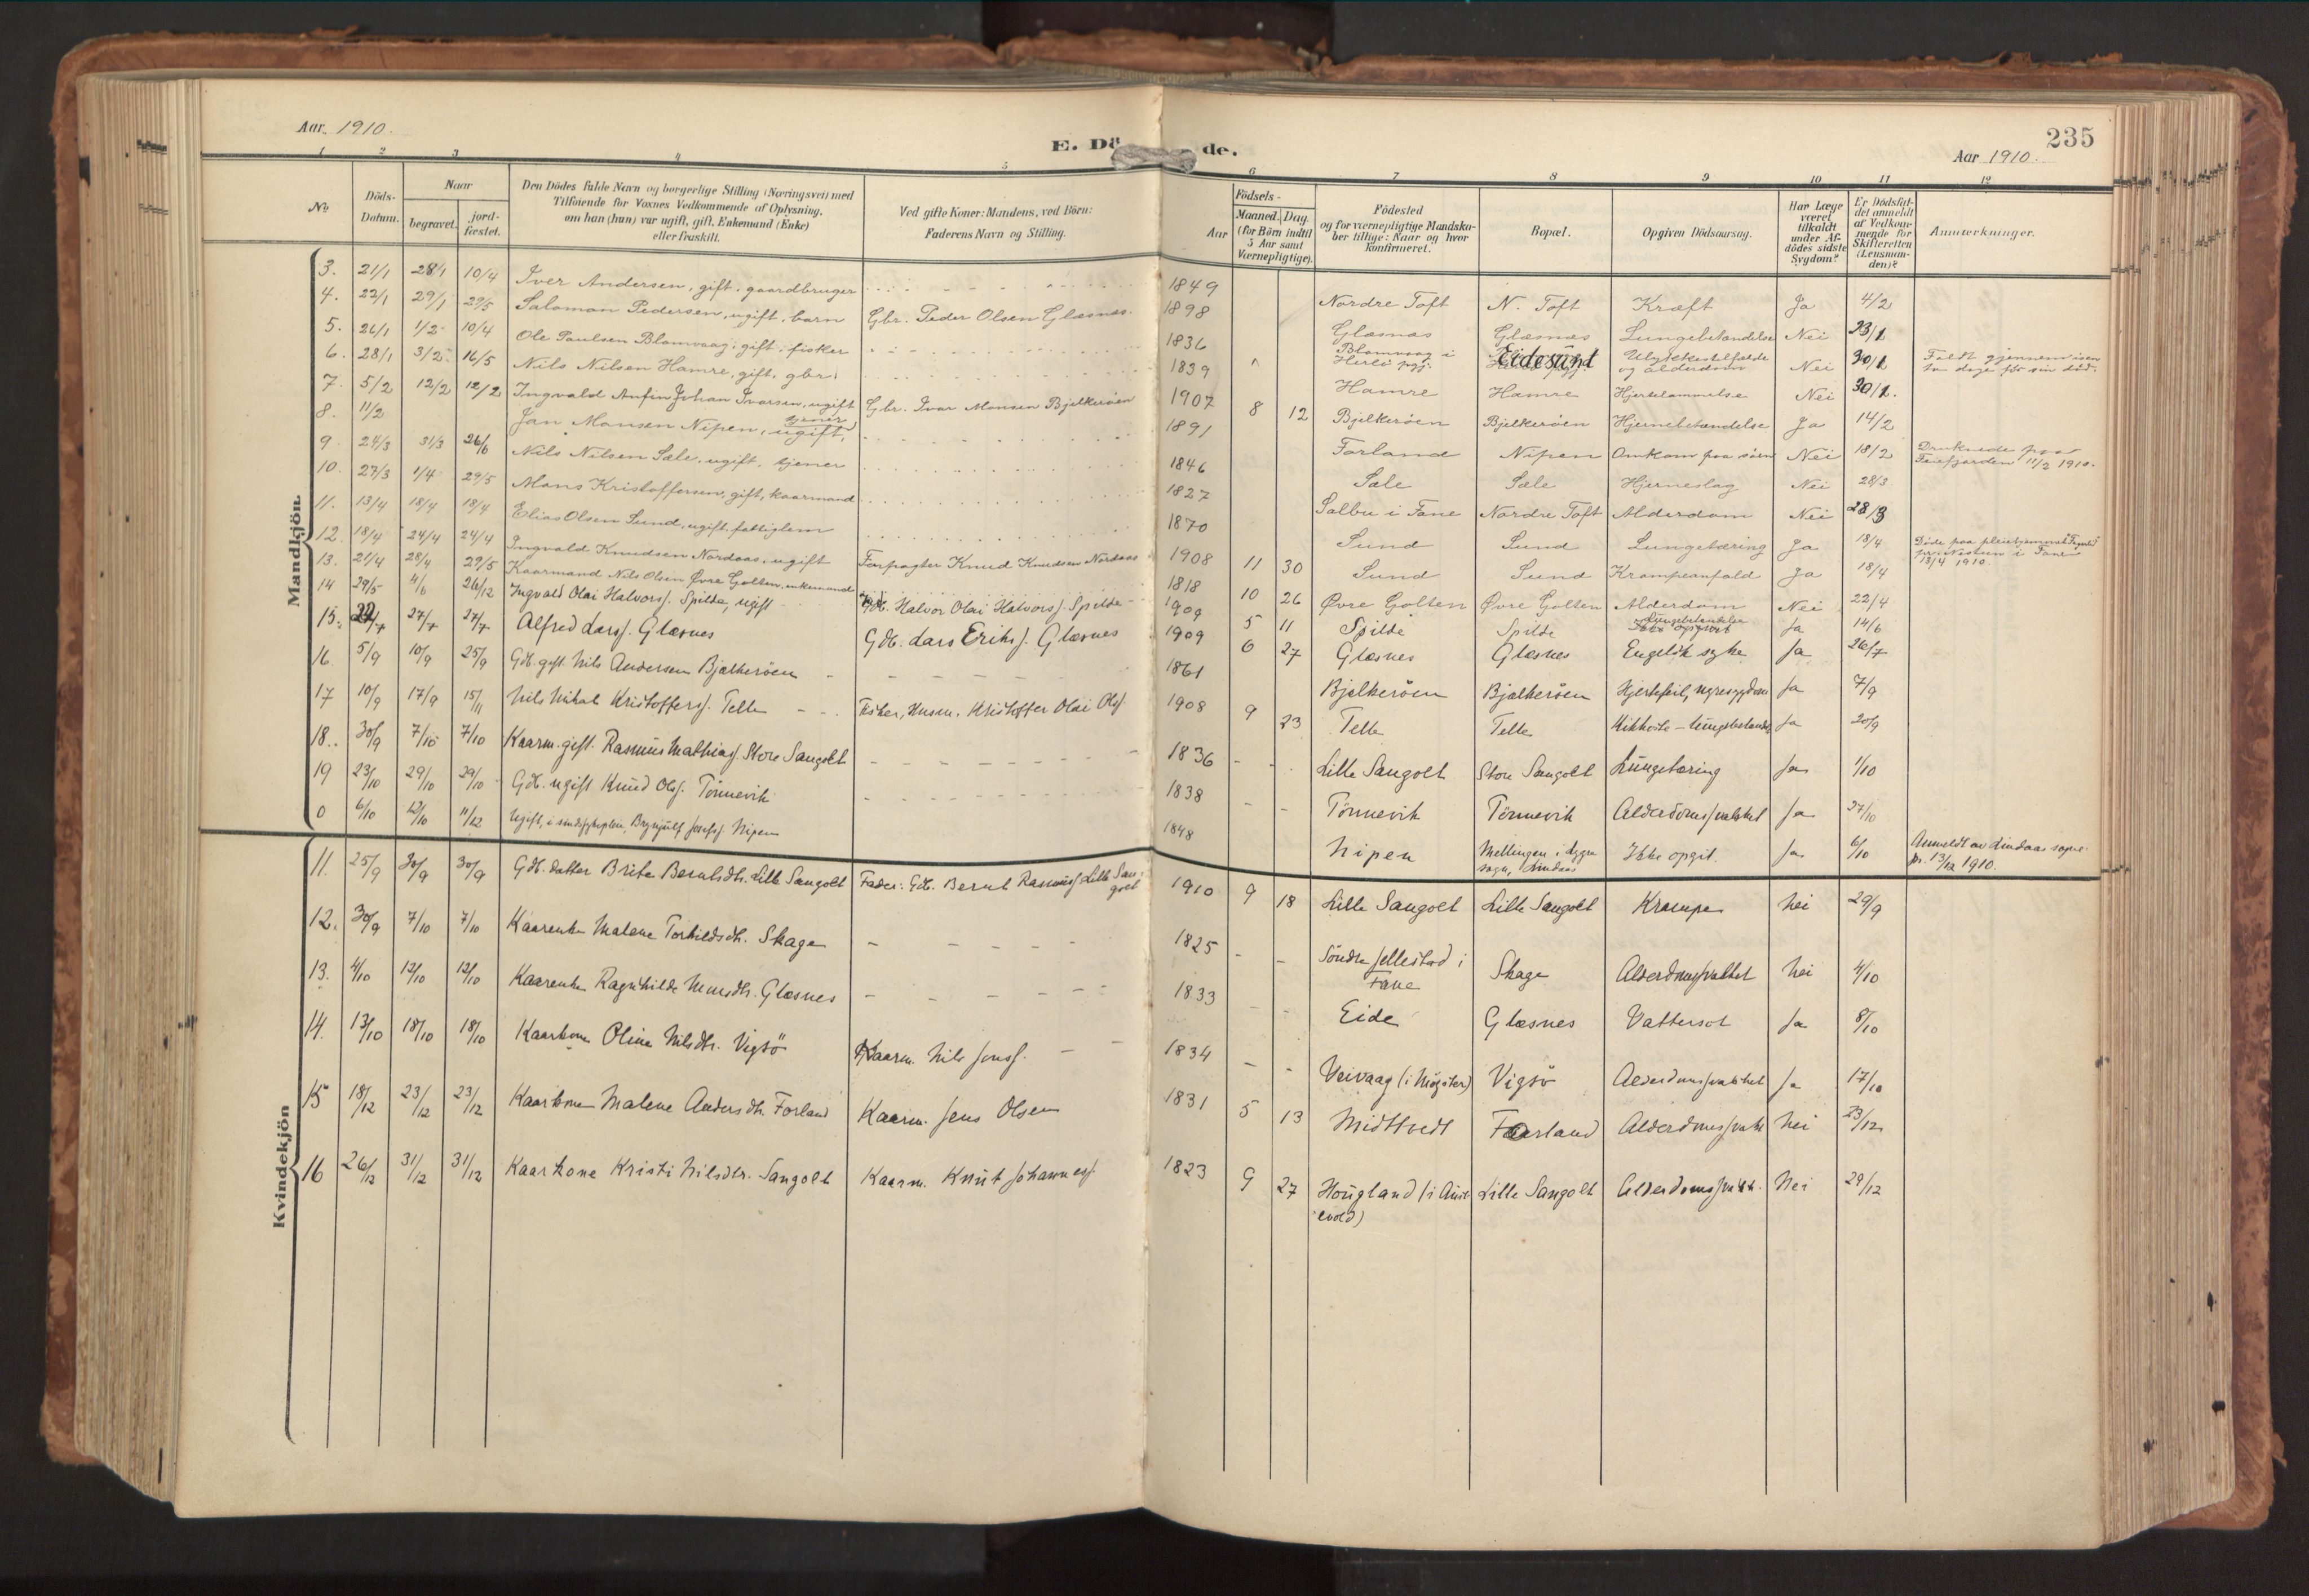 Aar 1910.
E. Dö de.
Aar 1910.
235
1 2 3 4 5 6 7 8 9 10 11 12
No
Döds-Datum.
Naar
begravet.
jord-fæstet.
Den Dödes fulde Navn og borgerlige Stilling (Næringsvei) med
Tilföiende for Voxnes Vedkommende af Oplysning,
om han (hun) var ugift, gift, Enkemand (Enke)
eller fraskilt.
Ved gifte Koner: Mandens, ved Börn:
Faderens Navn og Stilling.
Födsels-
Aar
Maaned. Dag.
(for Börn indtil
5 Aar samt
Værnepligtige).
Födested
og for værnepligtige Mandska-
ber tillige: Naar og hvor
konfirmeret.
Bopæl.
Opgiven Dödsaarsag.
Har Læge
været
tilkaldt
under Af-
dödes sidste
Sygdom?
Er Dödsfal-
det anmeldt
af Vedkom-
mende for
Skifteretten
(Lensman-
den)?
Anmærkninger.
Mandkjön
3. 21/1 28/1 10/4 Iver Andersen, gift, gaardbruger 1849 Nordre Toft N. Toft Kræft Ja 4/2
4. 22/1 29/1 29/5 Salomon Pedersen, ugift, barn Gbr. Peder Olsen Glæsnes 1898 Glæsnæs Glæsnæs Lungebetændelse Nei 23/1
5. 26/1 1/2 10/4 Ole Paulsen Blomvaag, gift, fisker 1836 Blomvaag i Herlö pgj. Eidesund Ulykkestilfælde og alderdom Nei 30/1 Faldt gjennem isen
6. 28/1 3/2 16/5 Nils Nilsen Hamre, gift, gbr. 1839 Hamre Hamre Hjertelammelse Nei 30/1.
7. 5/2 12/2 12/2 Ingvald Anfin Johan Ivarsen, ugift Gbr. Ivar Monsen Bjelkeröen 1907 8 12 Bjelkeröen Bjelkeröen Hjernebetændelse Ja 14/2
8. 11/2 Jan Monsen Nipen, ugift, tjener 1891 Forland Nipen Omkom paa söen Nei 18/2 Druknede paa 11/2 1910.
9. 24/3 31/3 26/6 Nils Nilsen Sæle, ugift, tjener 1846 Sæle Sæle Hjerneslag Nei 28/3
10. 27/3 1/4 29/5 Mons Kristoffersen, gift, kaarmand 1827 Salbu i Fane Nordre Toft Alderdom Nei 28/3
11. 13/4 18/4 18/4 Elias Olsen Sund, ugift fattiglem 1870 Sund Sund Lungetæring Ja 18/4 Döde paa pleiehjemmet pr. Nestun i Fane 13/4 1910.
12. 18/4 24/4 24/4 Ingvald Knudsen Nordaas, ugift Forpagter Knud Knudsen Nordaas 1908 11 30 Sund Sund Krampeanfald Ja 18/4
13. 21/4 28/4 29/5 Kaarmand Nils Olsen Øvre Golten, enkemand 1818 10 26 Øvre Golten Øvre Golten Alderdom Nei 22/4
14 29/5 4/6 26/12 Ingvald Olai Halvorss. Spilde, ugift Gdb. Halvor Olai Halvorss. Spilde 1909 5 11 Spilde Spilde Lungebetændelse Ja 14/6
15. 22/7 27/7 27/7 Alfred Larss. Glæsnes Gdb. Lars Eriks s. Glæsnes 1909 6 27 Glæsnes Glæsnes Engelsk syke Ja 26/7
16. 5/9 10/9 25/9 Gdb. gift. Nils Andersen Bjelkeröen 1861 Bjelkeröen Bjelkeröen Hjertefeil, nyresygdom Ja 7/9
17 10/9 17/9 15/11 Nils Mikal Kristofferss. Telle Fisker, Husm. Kristoffer Olai Ols. 1908 9 23 Telle Telle Kikhoste - lungebetændelse Ja 20/9
18. 30/9 7/10 7/10 Kaarm. gift. Rasmus Mathiass. Store Sangolt 1836 Lille Sangolt Store Sangolt Lungetæring Ja 1/10
19 23/10 29/10 29/10 Gdb. ugift Knud Ols. Tönnevik 1838 Tönnevik Tönnevik Alderdomssvakhet Ja 27/10
0 6/10 12/10 11/12 Ugift, i sindssykepleie, Brynjulf Josefs. Nipen 1848 Nipen Mellingen i Lygre sogn, Lindaas Ikke opgit. Ja 6/10 Anmeldt av Lindaas sognepr. 13/12 1910.
Kvindekjön
11. 25/9 30/9 30/9 Gdb. datter Brite Berntsdtr. Lille Sangolt Fader: Gdb. Bernt Rasmuss. Lille Sangolt 1910 9 18 Lille Sangolt Lille Sangolt Krampe Nei 29/9
12. 30/9 7/10 7/10 Kaarenke Malene Torkildsdtr. Skage 1825 Söndre Jellestad i Fane Skage Alderdomssvakhet Nei 4/10
13. 4/10 12/10 12/10 Kaarenke Ragnhilde Monsdtr. Glæsnes 1833 Eide Glæsnes Vattersot Ja 8/10
14. 13/10 18/10 18/10 Kaarkone Oline Nilsdtr. Vigsö Kaarm. Nils Jenss. 1834 Veivaag (i Møgster) Vigsö Alderdomssvakhet Ja 17/10
15 18/12 23/12 23/12 Kaarkone Malene Andersdtr. Forland Kaarm. Jens Olsen 1831 5 13 Midttvedt Forland Alderdomssvakh. Nei 23/12
16 26/12 31/12 31/12 Kaarkone Kristi Nilsdtr. Sangolt Kaarm. Knut Johanness. 1823 9 27 Hougland (i Austevold) Lille Sangolt Alderdomssvakh. Nei 29/12